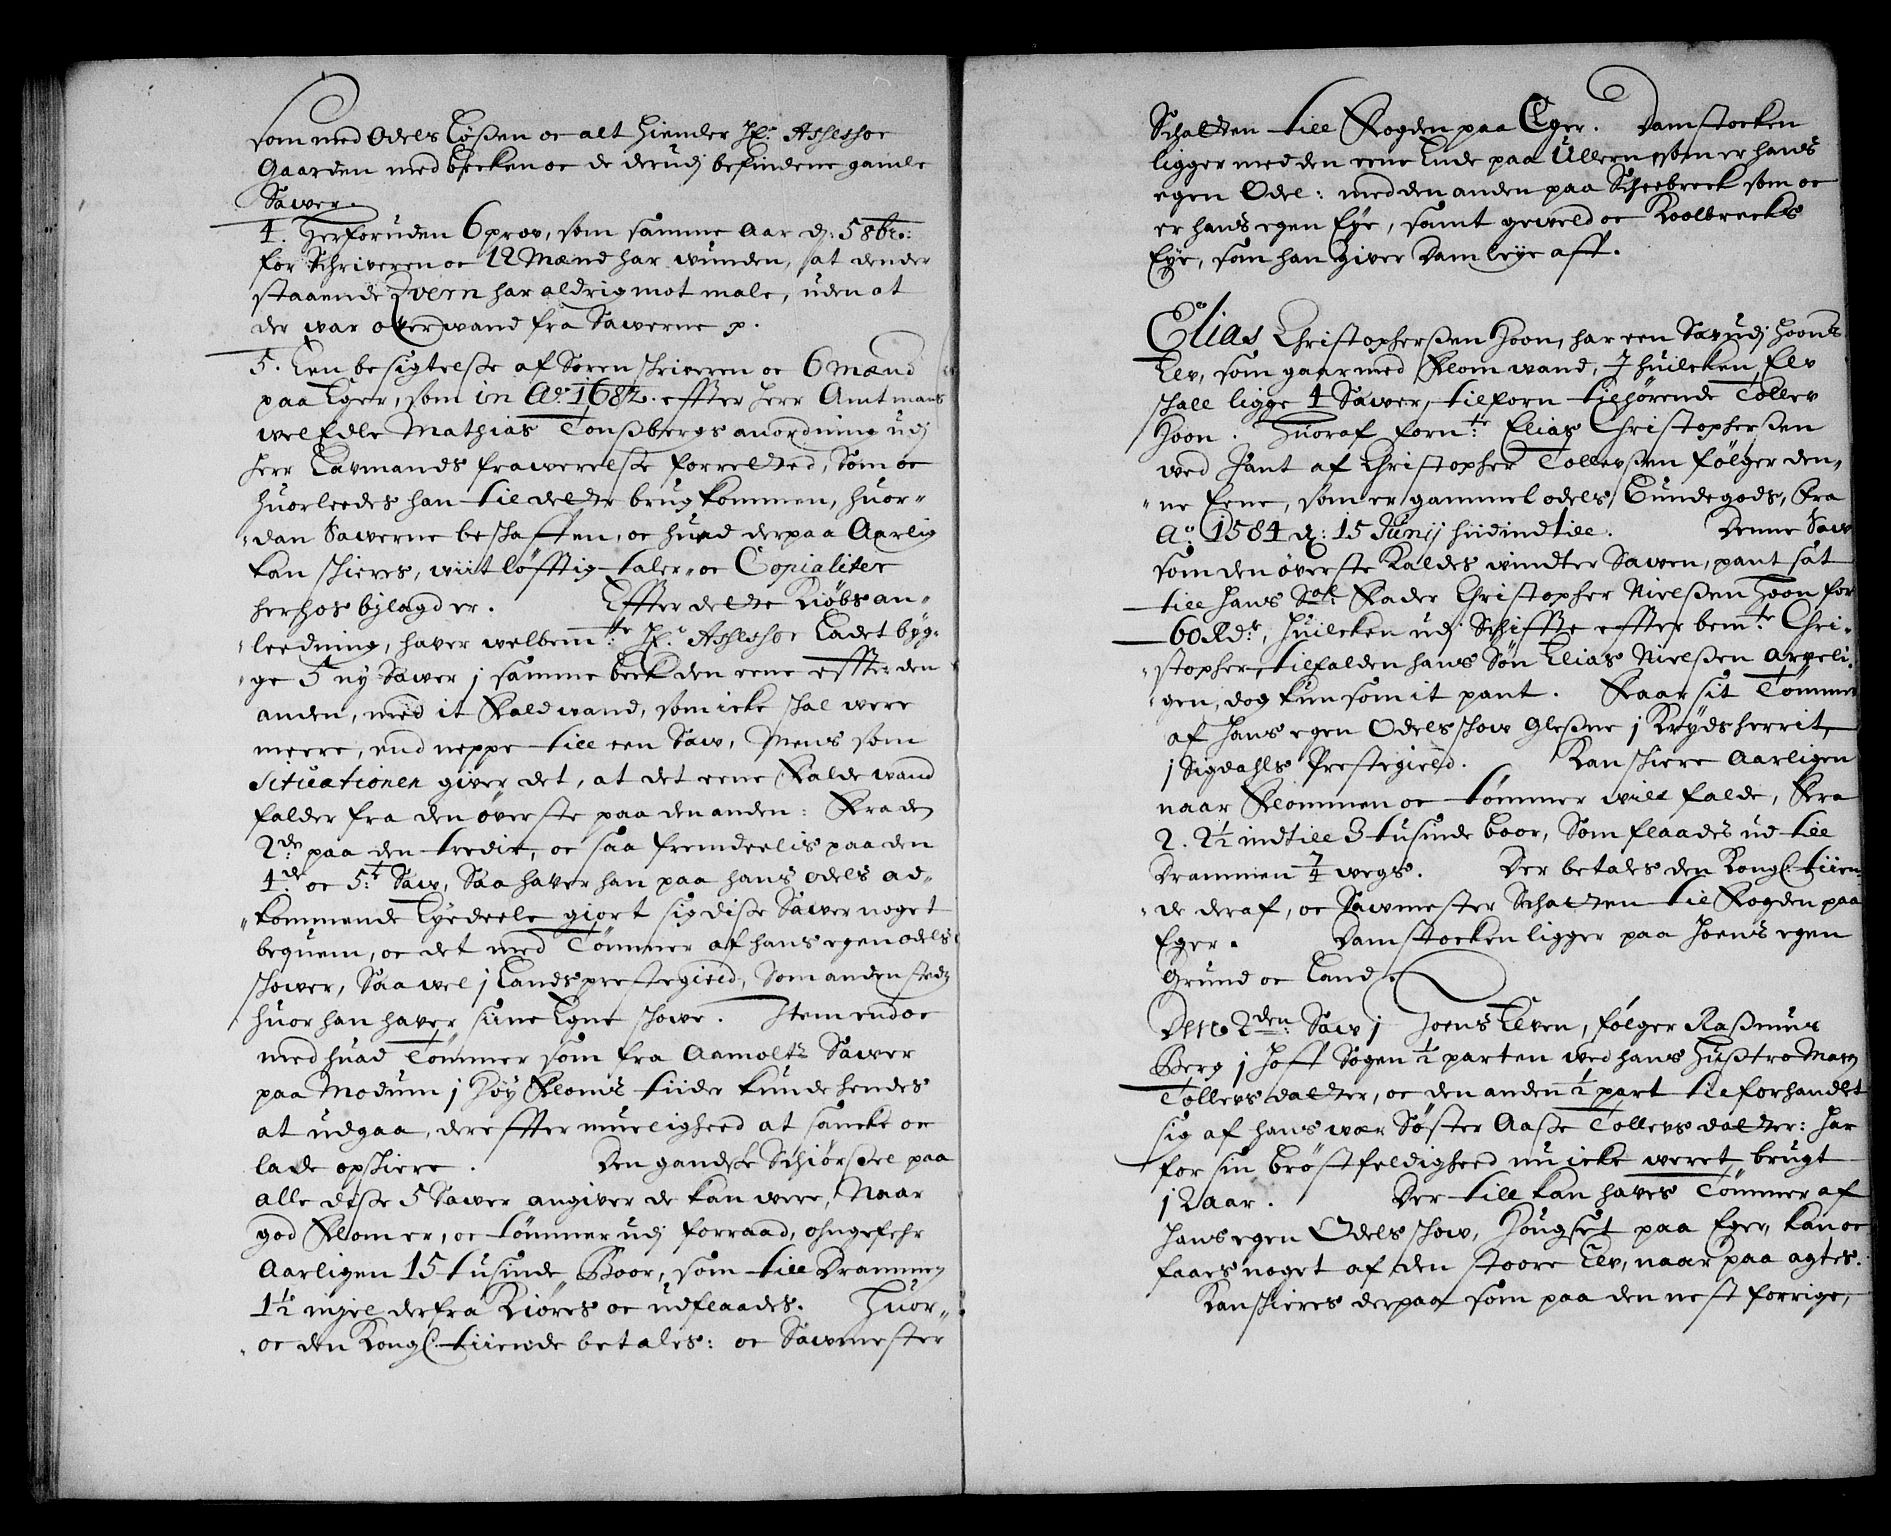 som med Odels Løßen oc alt Hiender Hr. Assessor
Gaarden med becken oc de derudj befindene gamle
Sawer.
4. Herforuden 6 prov, som samme Aar d: 5 8br:
for Schriveren oc 12 Mænd har wunden, at den der
staaende Qvern har aldrig mot male, uden at
der war overwand fra Sawerne p.
5. Een besigtelße af Søren schriveren oc 6 Mænd
paa Eger, som in Ao. 1682. effter Herr Amtmans
wel Edle Mathias Tonßbergs anordning udj
Herr Lavmands frawerelße forretted, Som oc
huorleedes han til dette brug kommen, huor-
dan Sawerne beschaffen, oc huad derpaa Aarlig
kan schieres, wiitløfftig taler, oc Copialiter
herhos bylagd er. Effter dette Kiøbs an-
leedning, haver welbemte: Hr. Assessor Ladet byg-
ge 5 ny Sawer j samme beck den eene effter den
anden, med it Fald wand, som icke schal were
meere, end neppe till een Saw, Mens som
Situationen giver det, at det eene Falde wand
falder fra den øverste paa den anden: Fra den
2den paa den tredie, oc saa fremdeelis paa den
4de oc 5te Saw, Saa haver han paa hans odels ad-
kommende Eyedeele giort sig diße Sawer noget
bequem, oc det med Tømmer af hans egen odels
schower, Saa wel j Lands prestegield, Som andensteds
huor han haver siine Egne schowe. Item end oc
med huad Tømmer som fra Aamolts Sawer
paa Modum j Høy Floms tiider kunde hendes
at udgaa, dereffter mueligheed at sancke oc
lade opschiere. Den gandske Schiørsel paa
alle diße 5 Sawer angiver de kan were, Naar
god Flom er, oc tømmer udj forraad, ohngefehr
Aarligen 15 tusinde Boor, som till Drammen
1½ mjel derfra Kiøres oc udflaades. Huor-
oc den Kongl. tiiende betales: oc Sawmester
Schatten till Fogden paa Eger. Damstocken
ligger med den eene Ende paa Ullern som er hans
egen Odel: med den anden paa Scheebreck som oc
er hans egen Eye, samt geweld oc Koolbrecks
Eye, som han giver Damleye aff.
Elias Christopherßen Hoon, har een Saw udj Hoons
Elv, som gaar med Flom wand, J huilcken Elv
schall ligge 4 Sawer, tilforn tilhørende Tollev
Hoon. Huoraf fornte Elias Christopherßen
wed Pant af Christopher Tollevßen følger den-
ne Eene, som er gammel odels, Bundegods, Fra
Ao. 1584 d: 15 Junij hidindtill. Denne Saw
som den øverste Kaldes windter Sawen, pant sat
till Hans Sal. Fader Christopher Nielßen Hoon for
60 Rdr, Huilcken udj Schiffte effter bemte Chri-
stopher, tilfalden hans Søn Elias Nielßen arveli-
gen, dog kun som it pant. Faar sit Tømmer
af Hans egen Odels schow Gleßne j Krydsherrit
j Sigdahls Prestegield. Kan schiere Aarligen
naar Flommen oc tømmer will falde, Fra
2. 2½ indtill 3 tusinde boor, Som flaades ud till
Drammen ¼ wegs. Der betales den Kongl. tiien-
de deraf, oc Sawmester Schatten til Fogden paa
Eger. Damstocken ligger paa Hoens egen
Grund oc Land.
Den 2den: Saw j Hoens Elven, følger Raßmus
Berg j Hoff Sogen ½ parten wed hans Hustro Maren
Tollevs datter, oc den anden ½ part tilforhandlet
sig af hans wær Søster Aaße Tollevs datter: Har
for sin brøstfeldigheed nu icke weret brugt
j 2 aar. Der till kan haves Tømmer af
Hans egen Odels schow, Hougset paa Eger, kan oc
faaes noget af den stoore Elv, naar paa agtes.
Kan schieres derpaa som paa den nest forrige,